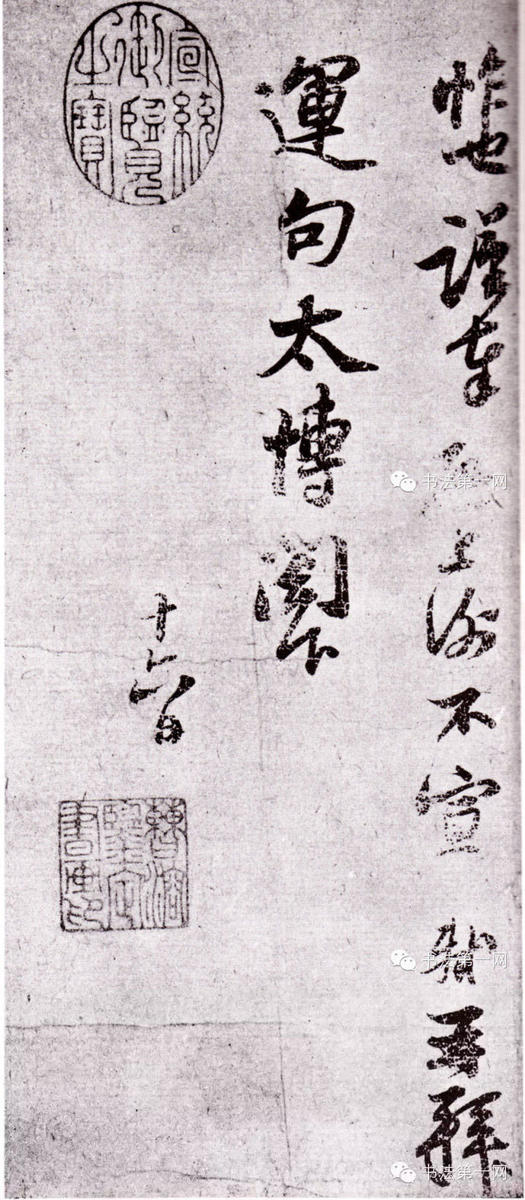 怍也謹奉啓上謝不宣 軾再拜
運句太博閣下
十六日
宣統御覽之寶
鑒定書畫印
书法第一网
书法第一网
书法第一网